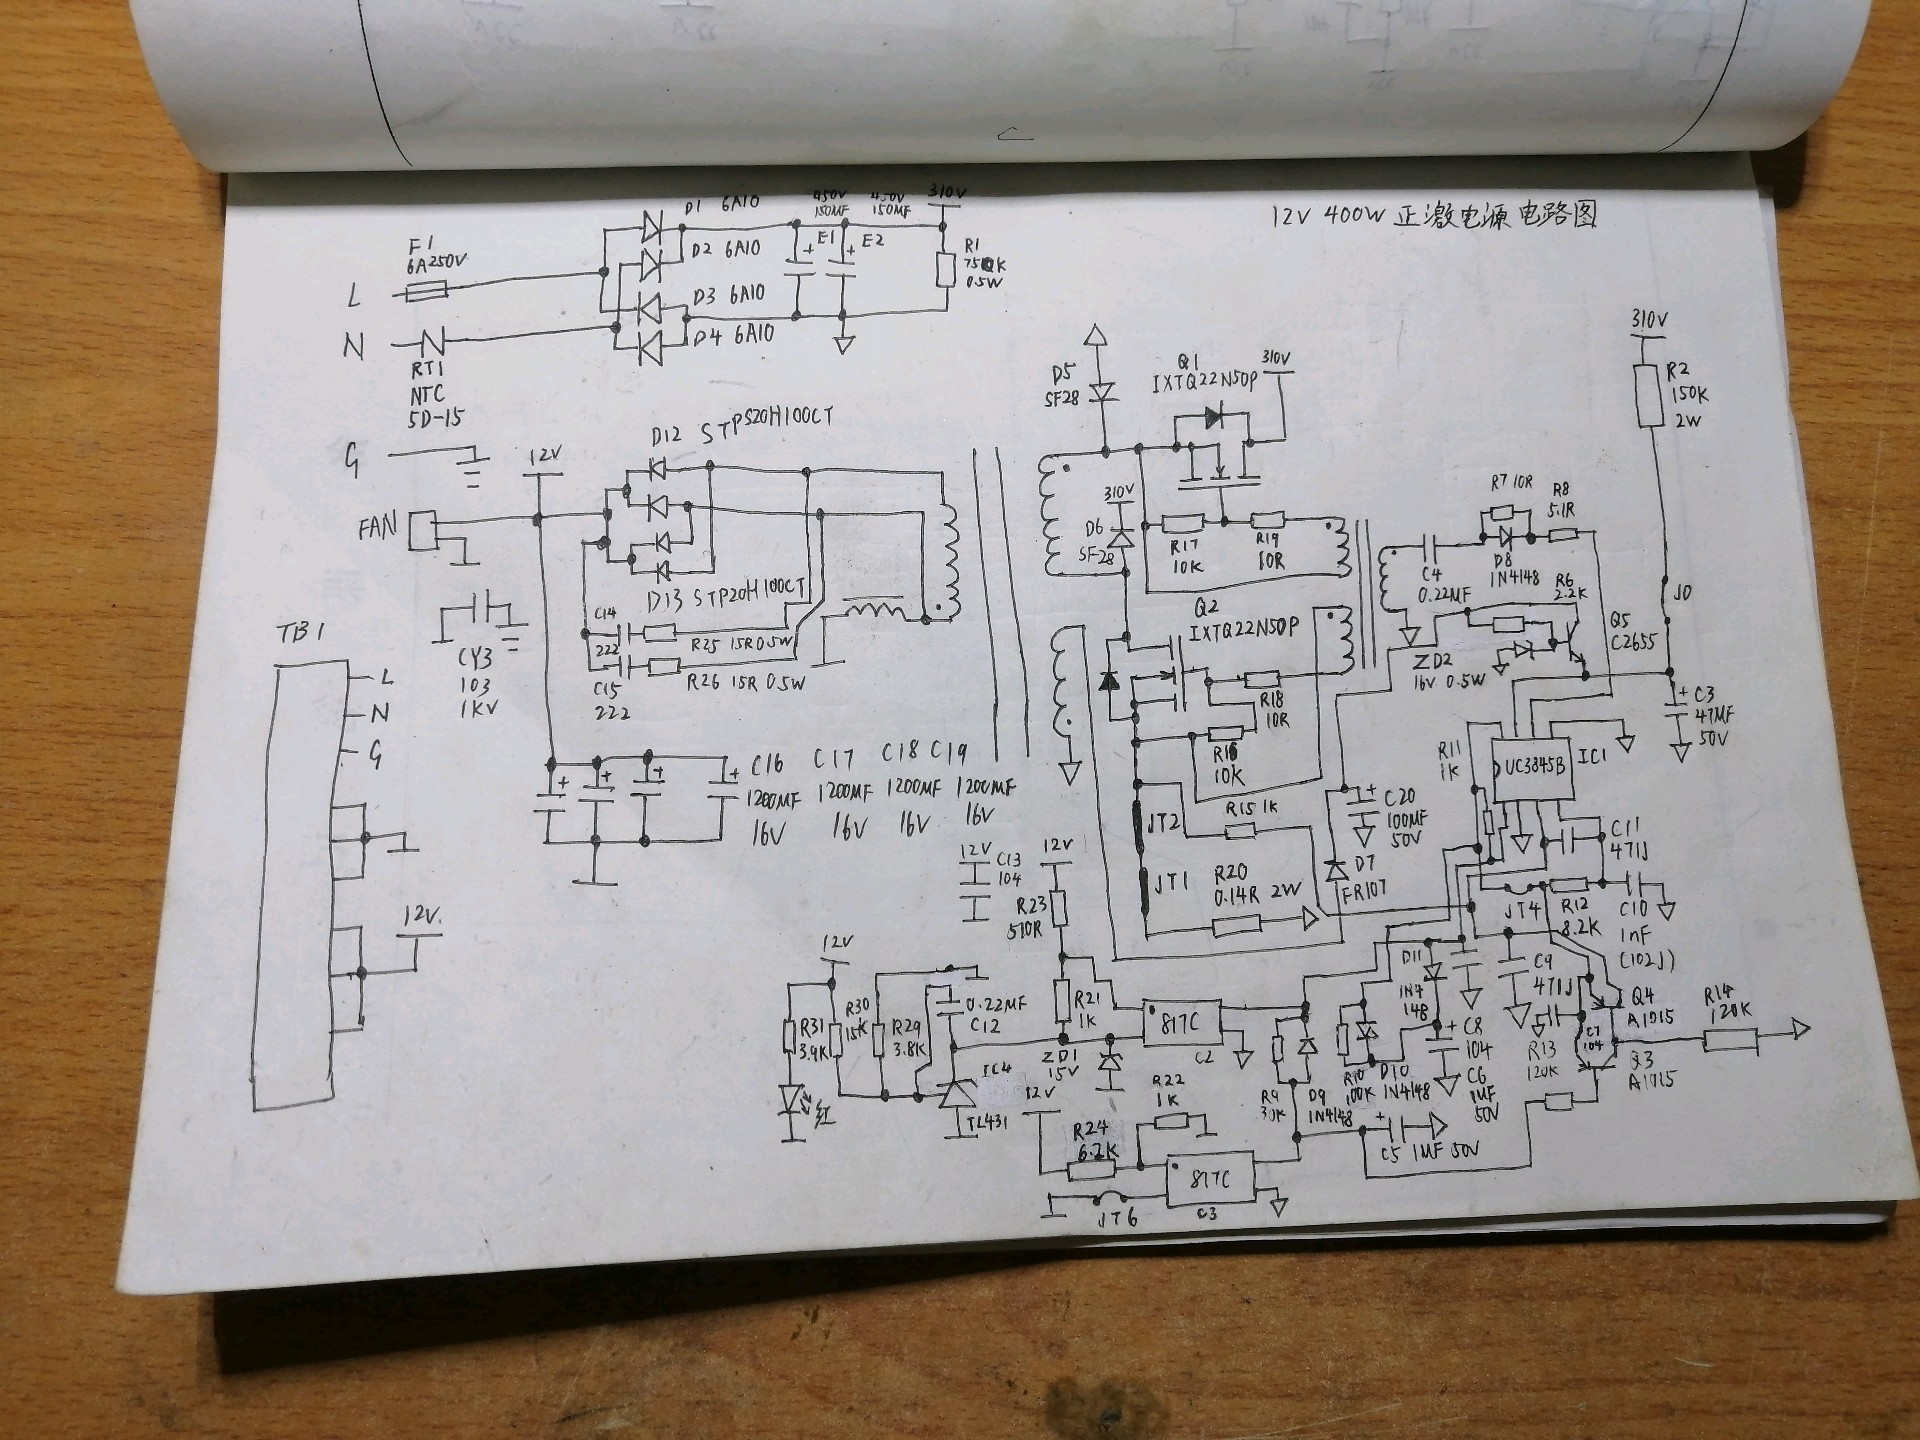 12V 400W 正激电源电路图
F1
6A250V
L
N
RT1
NTC
5D-15
G
D1 6A10
D2 6A10
D3 6A10
D4 6A10
450V
150MF
450V
150MF
E1
E2
310V
R1
0.5W
FAN
12V
D12 STPS20H100CT
D13 STP20H100CT
C14
222
R25 15R0.5W
C15
222
R26 15R 0.5W
CY3
103
1KV
TB1
L
N
G
12V
C16
1200MF
16V
C17
1200MF
16V
C18
1200MF
16V
C19
1200MF
16V
D5
SF28
Q1
IXTQ22N50P
310V
310V
D6
SF28
R17
10K
R19
10R
Q2
IXTQ22N50P
R18
10R
10K
R15 1K
JT2
JT1
R20
0.14R 2W
D7
FR107
C20
100MF
50V
310V
R2
150K
2W
J0
R7 10R
R8
5.1R
D8
1N4148
C4
0.22MF
R6
2.2K
Q5
C2655
ZD2
16V 0.5W
C3
47MF
50V
R11
1K
UC3845B
IC1
C11
471J
JT4
R12
8.2K
C10
1nF
(102J)
C9
471J
D11
1N4
148
Q4
A1015
R14
120K
C7
104
R13
120K
Q3
A1015
C8
104
C6
1MF
50V
R10
100K
D10
1N4148
R9
D9
1N4148
C5 1MF 50V
12V
C13
104
12V
R23
510R
R21
1K
817C
C2
ZD1
15V
12V
R31
3.9K
R30
15K
R29
3.8K
0.22MF
C12
IC4
TL431
红
12V
R24
6.2K
R22
1K
817C
C3
JT6